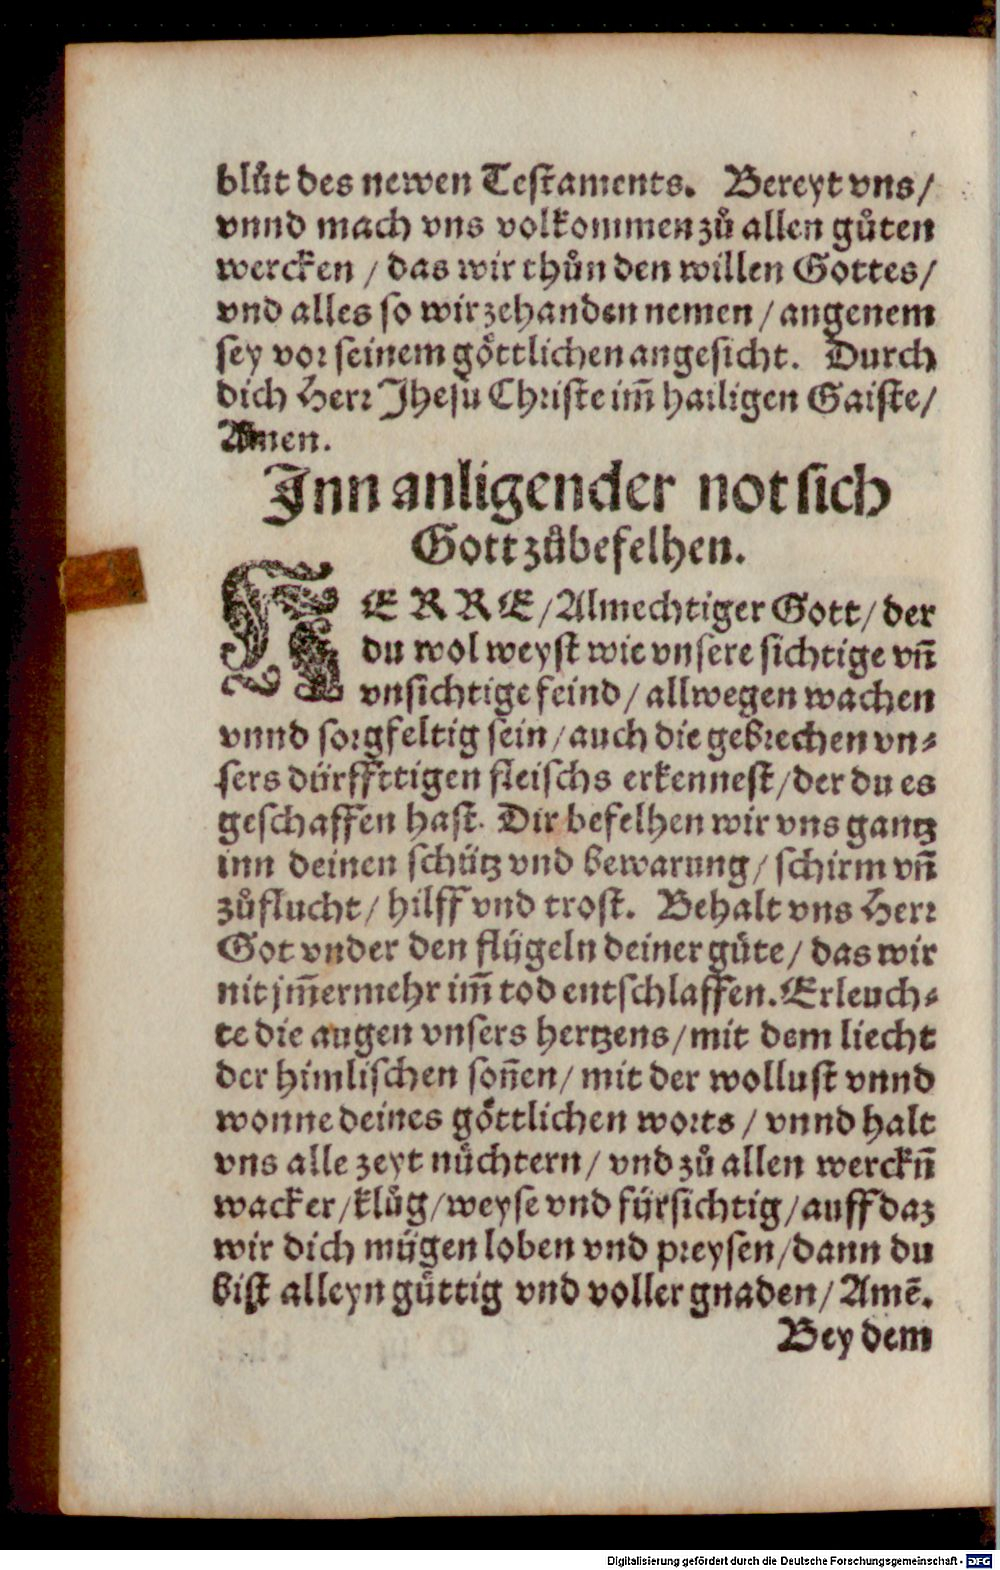 blůt des newen Testaments. Bereyt vns/
vnnd mach vns volkommen zů allen gůten
wercken / das wir thůn den willen Gottes/
vnd alles so wir zehanden nemen / angenem
sey vor seinem göttlichen angesicht. Durch
dich Herr Jhesu Christe im̃ hailigen Gaiste/
Amen.
Jnn anligender not sich
Gott zůbefelhen.
HERRE/Almechtiger Gott/ der
du wol weyst wie vnsere sichtige vñ
vnsichtige feind / allwegen wachen
vnnd sorgfeltig sein/ auch die gebrechen vn⸗
sers dürffttigen fleischs erkennest/der du es
geschaffen hast. Dir befelhen wir vns gantz
inn deinen schütz vnd bewarung/ schirm vñ
zůflucht/ hilff vnd trost. Behalt vns Herr
Got vnder den flügeln deiner güte/ das wir
nit jm̃ermehr im̃ tod entschlaffen. Erleuch⸗
te die augen vnsers hertzens/mit dem liecht
der himlischen soñen/ mit der wollust vnnd
wonne deines göttlichen worts / vnnd halt
vns alle zeyt nüchtern/ vnd zů allen werckñ
wacker/klůg/weyse vnd fürsichtig/auff daz
wir dich mügen loben vnd preysen/dann du
bist alleyn güttig vnd voller gnaden/ Amẽ.
Bey dem
Digitalisierung gefördert durch die Deutsche Forschungsgemeinschaft - DFG